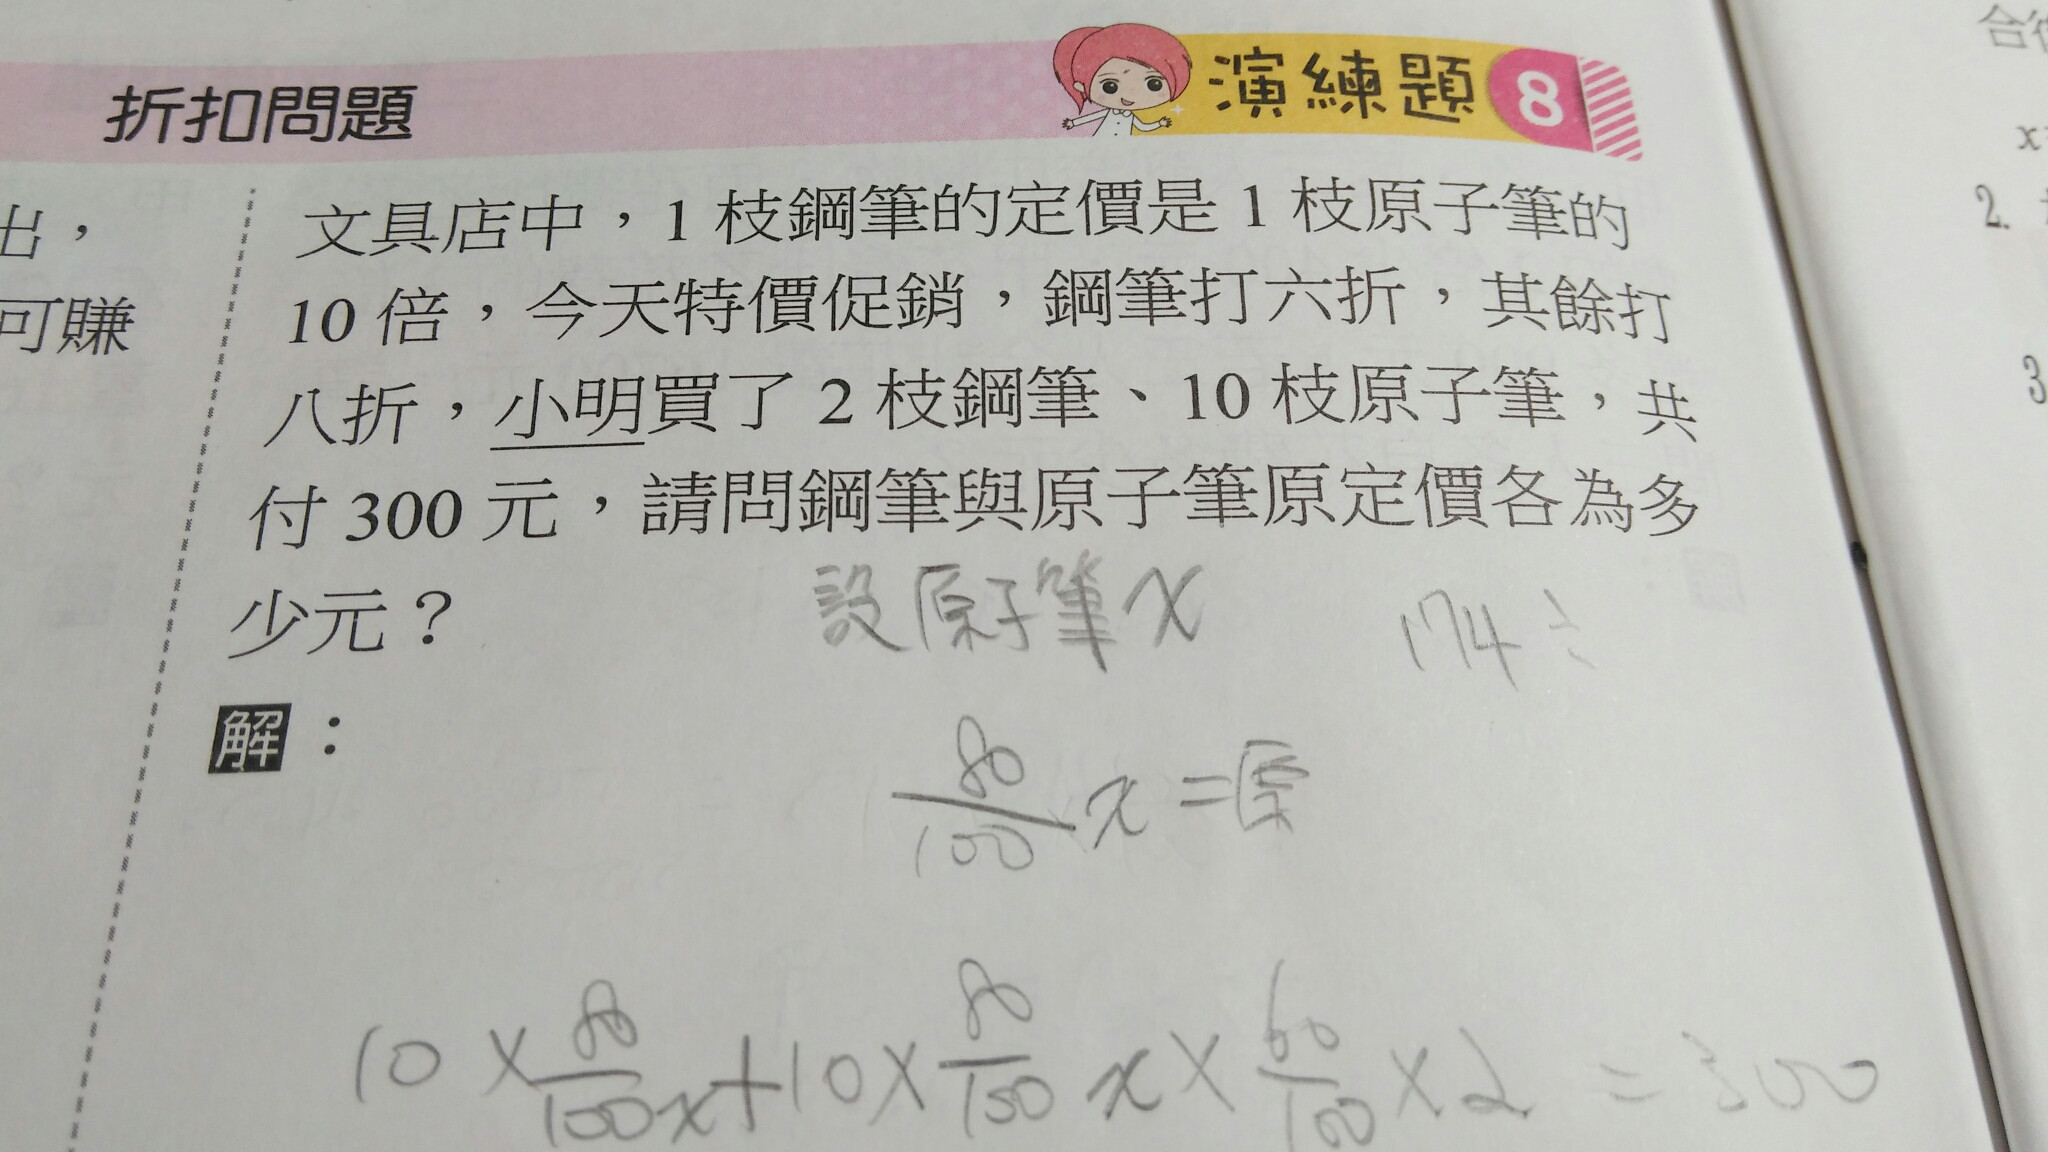 折扣問題
演練題 8
出，
可賺
文具店中，1 枝鋼筆的定價是 1 枝原子筆的
10 倍，今天特價促銷，鋼筆打六折，其餘打
八折，小明買了 2 枝鋼筆、10 枝原子筆，共
付 300 元，請問鋼筆與原子筆原定價各為多
少元？
設原子筆 x
174 ÷
解：
80/100 x = 原
10 × 80/100 x + 10 × 80/100 x × 60/100 × 2 = 300
合
x
2.
3